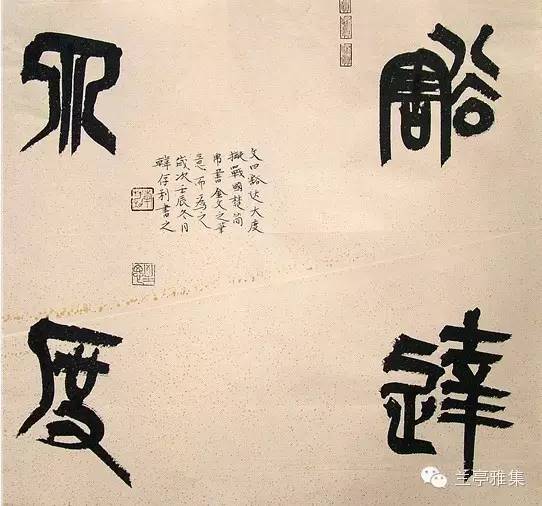 豁達
大度
文曰豁达大度
擬戰國楚简
帛書金文之筆
意而為之
歲次壬辰冬月
韓存利書之
兰亭雅集